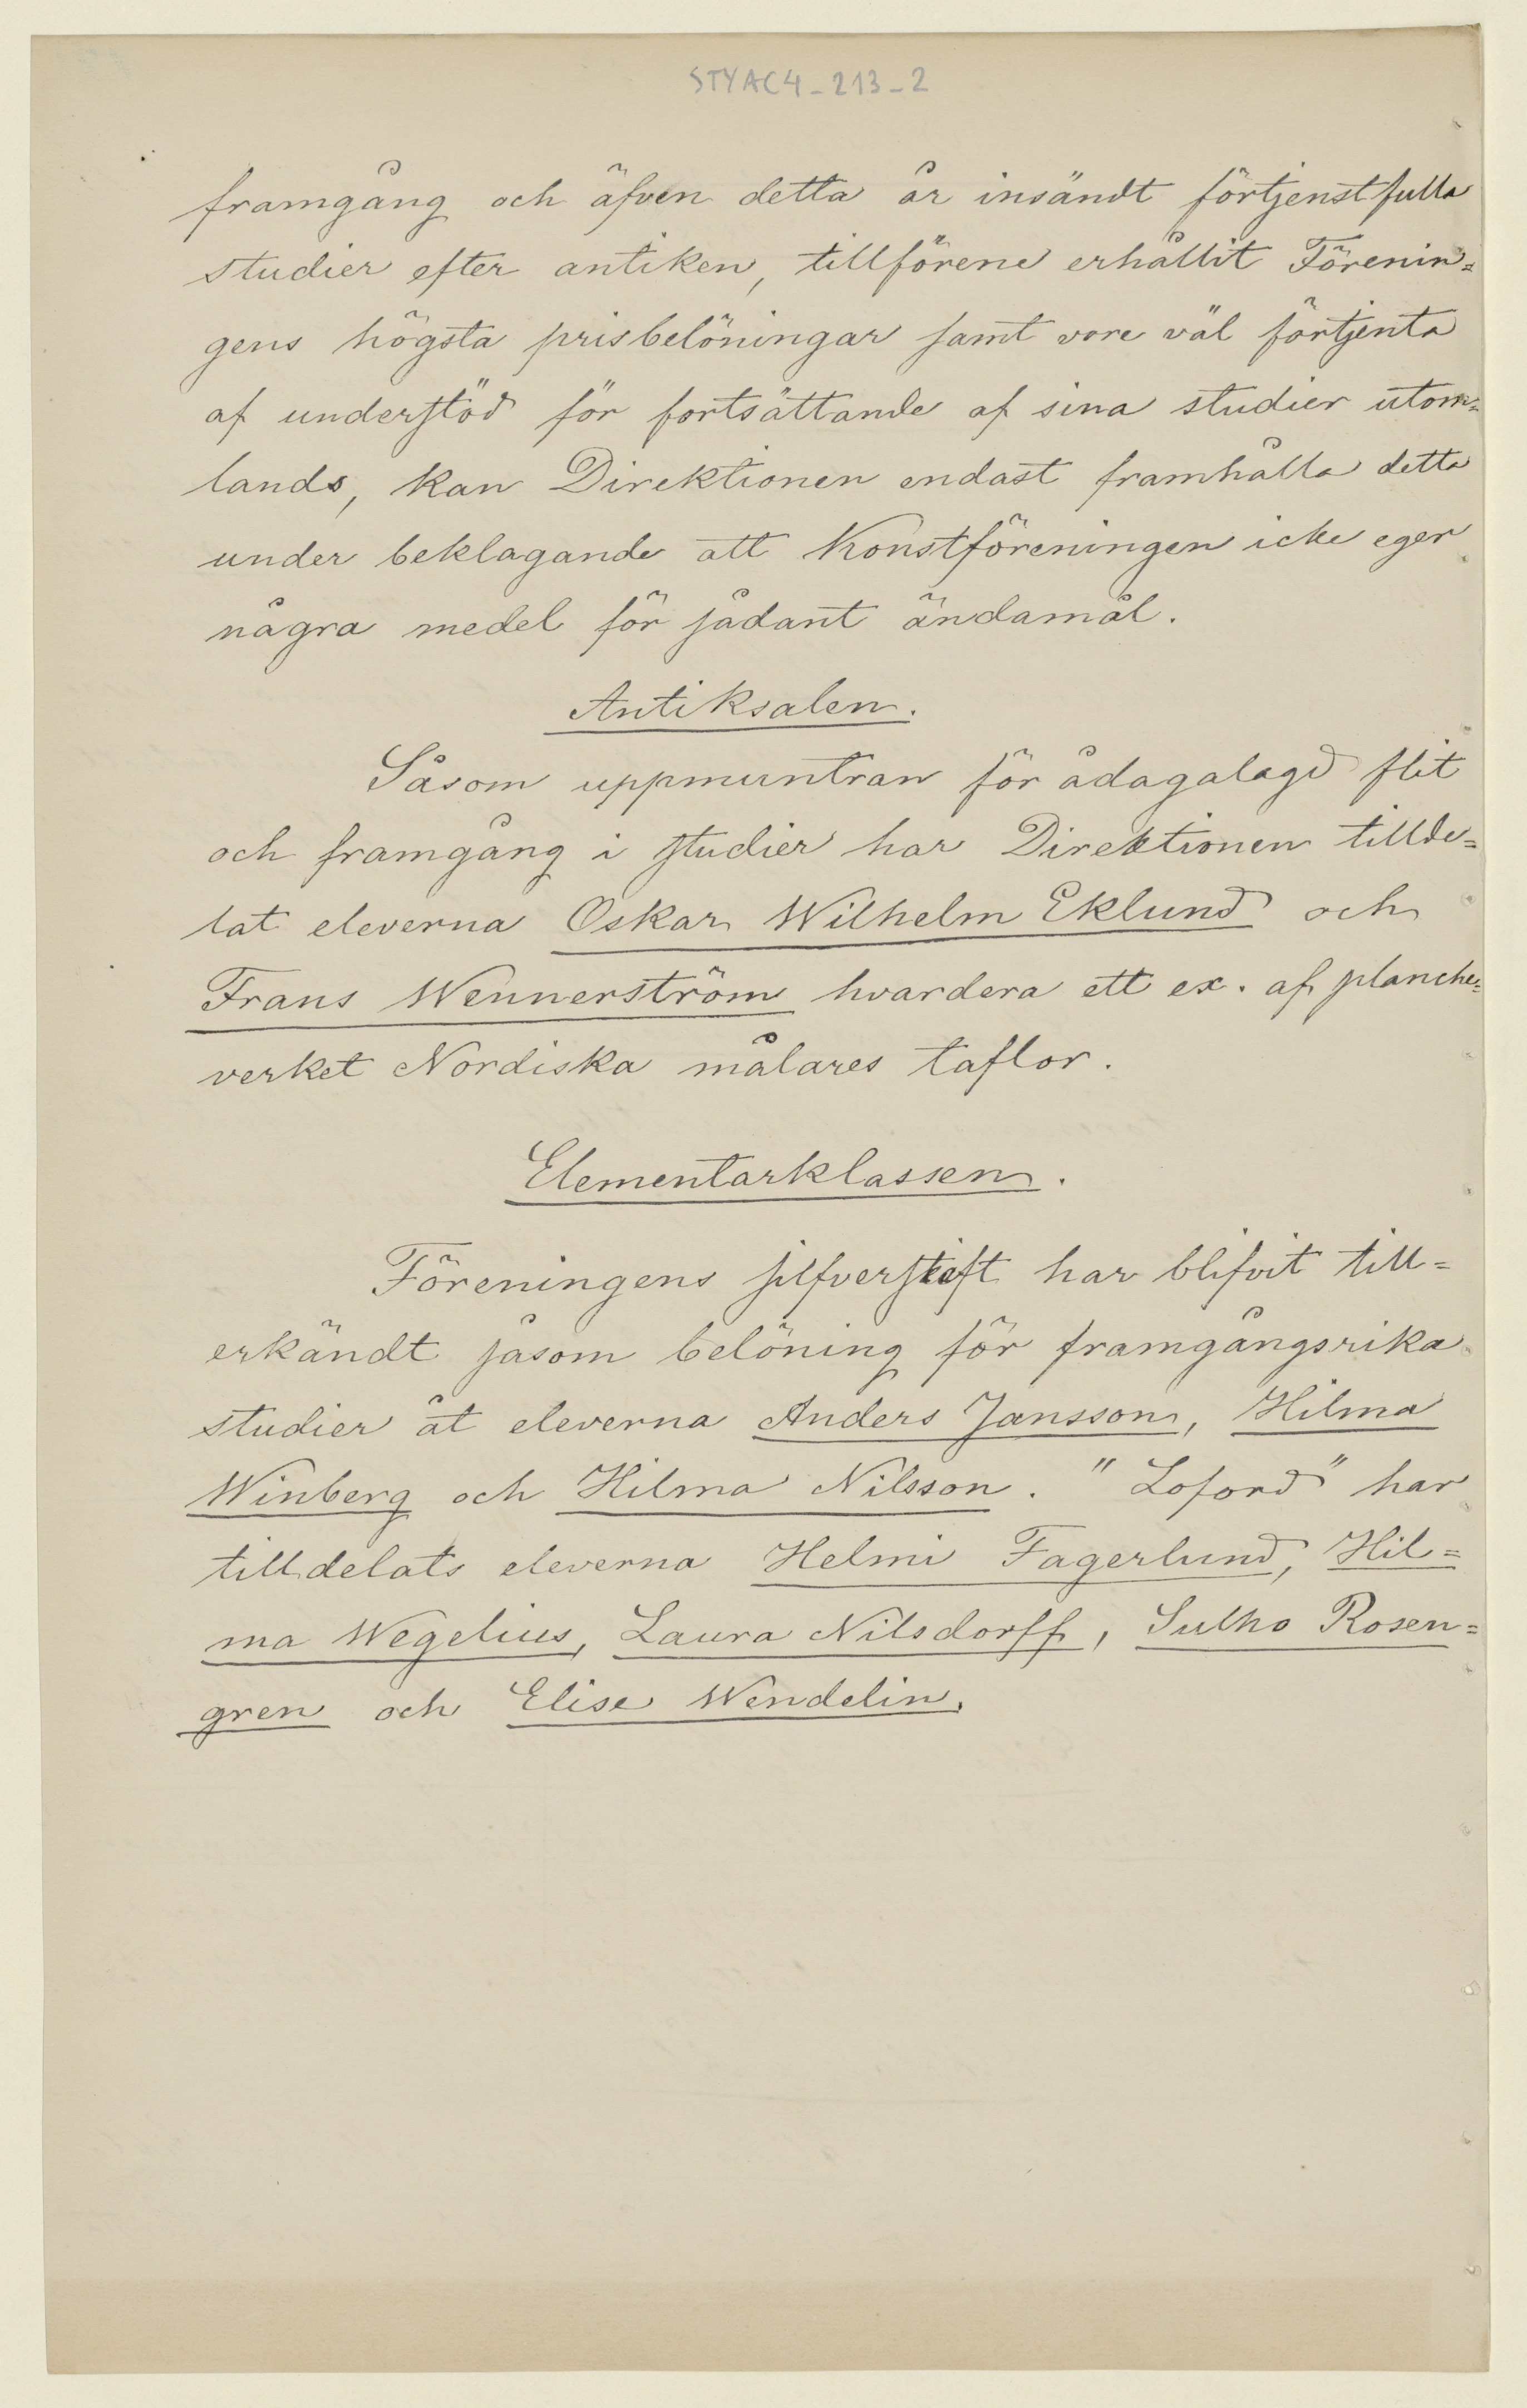 STYAC4_213_2
framgång och äfven detta år insändt förtjenstfulla
studier efter antiken, tillförene erhållit Förenin=
gens högsta prisbelöningar samt vore väl förtjenta
af understöd för fortsättande af sina studier utom=
lands, kan Direktionen endast framhålla detta
under beklagande att Konstföreningen icke eger
några medel för sådant ändamål.
Antiksalen.
Såsom uppmuntran för ådagalagd flit
och framgång i studier har Direktionen tillde=
lat eleverna Oskar Wilhelm Eklund och
Frans Wennerström hvardera ett ex. af planche=
verket Nordiska målares taflor.
Elementarklassen.
Föreningens silfverstift har blifvit till=
erkändt såsom belöning för framgångsrika
studier åt eleverna Anders Jansson, Hilma
Winberg och Hilma Nilsson. "Loford" har
tilldelats eleverna Helmi Fagerlund, Hil=
ma Wegelius, Laura Nilsdorff, Sulho Rosen=
gren och Elise Wendelin.